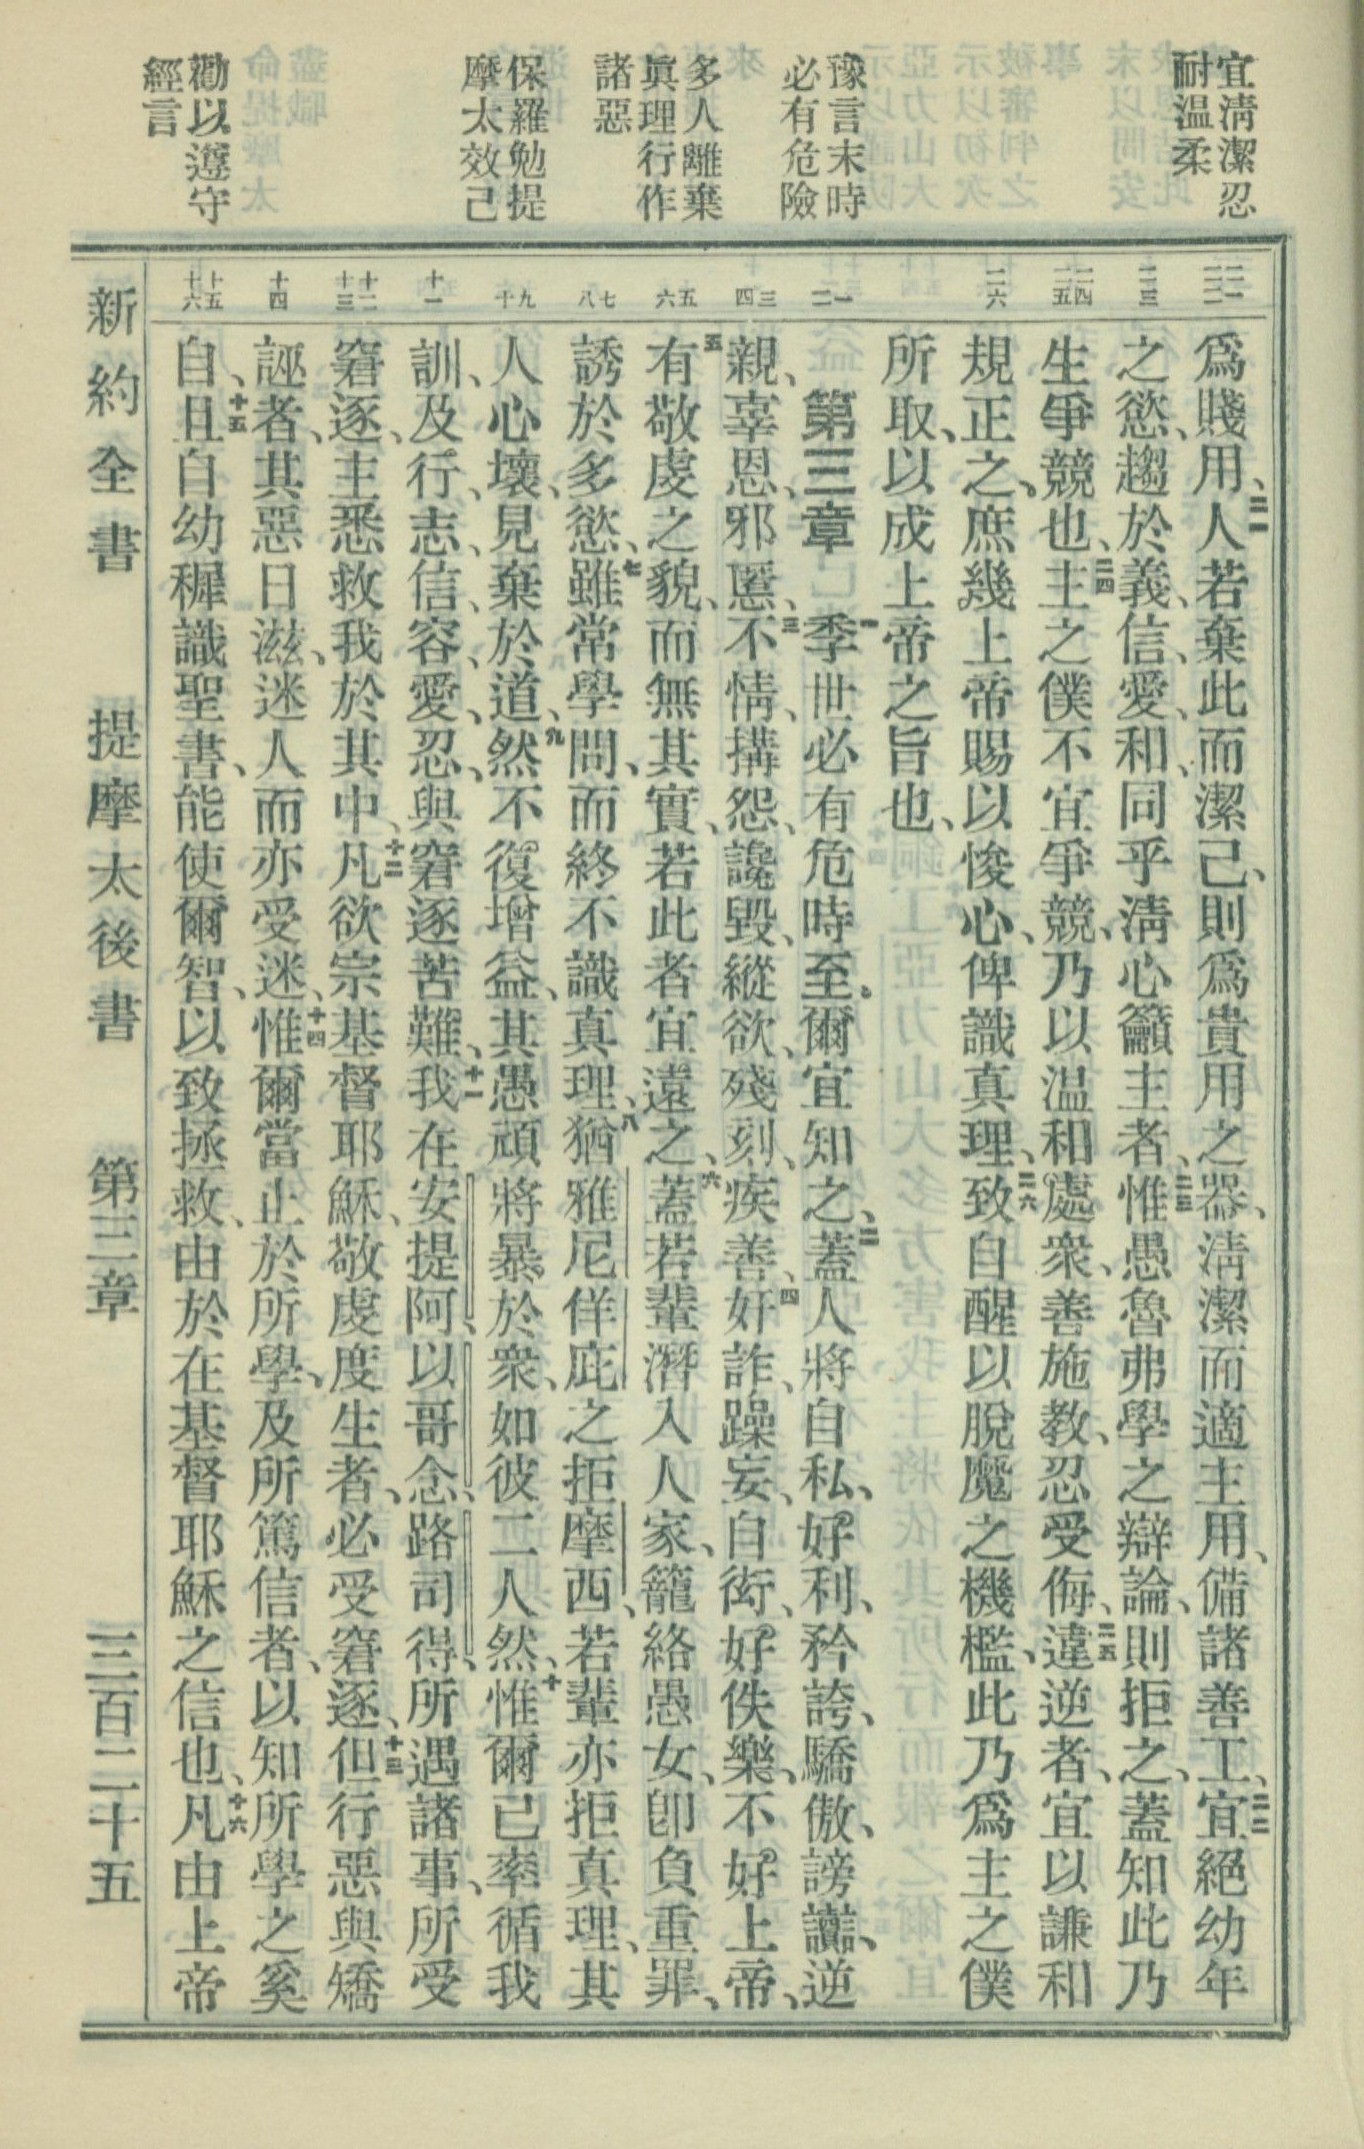 宜淸潔忍
耐溫柔
豫言末時
必有危險
多人離棄
眞理行作
諸惡
保羅勉提
摩太效己
勸以遵守
經言
二一 二二
二三
二四 二五
二六
一 二
三 四
五 六
七 八
九 十
十一
十二 十三
十四
十五 十六
爲賤用、二一人若棄此而潔己、則爲貴用之器、淸潔而適主用、備諸善工、二二宜絕幼年
之慾、趨於義、信、愛、和、同乎淸心籲主者、二三惟愚魯弗學之辯論、則拒之、蓋知此乃
生爭競也、二四主之僕不宜爭競、乃以温和處衆、善施教、忍受侮、二五違逆者、宜以謙和
規正之、庶幾上帝賜以悛心、俾識真理、二六致自醒以脫魔之機檻、此乃爲主之僕
所取、以成上帝之旨也、
第三章 一季世必有危時至。爾宜知之、二蓋人將自私、好利、矜誇、驕傲、謗讟、逆
親、辜恩、邪慝、三不情、搆怨、讒毀、縱欲、殘刻、疾善、四奸詐、躁妄、自衒、好佚樂、不好上帝、
五有敬虔之貌、而無其實、若此者宜遠之、六蓋若輩潛入人家、籠絡愚女、卽負重罪、
誘於多慾、七雖常學問、而終不識真理、八猶雅尼佯庇之拒摩西、若輩亦拒真理、其
人心壞、見棄於道、九然不復增益、其愚頑將暴於衆、如彼二人然、十惟爾已率循我
訓、及行、志、信、容、愛、忍、與窘逐苦難、十一我在安提阿、以哥念、路司得、所遇諸事、所受
窘逐、主悉救我於其中、十二凡欲宗基督耶穌、敬虔度生者、必受窘逐、十三但行惡與矯
誣者、其惡日滋、迷人而亦受迷、十四惟爾當止於所學、及所篤信者、以知所學之奚
自、十五且自幼穉識聖書、能使爾智、以致拯救、由於在基督耶穌之信也、十六凡由上帝
新約全書 提摩太後書 第三章 三百二十五